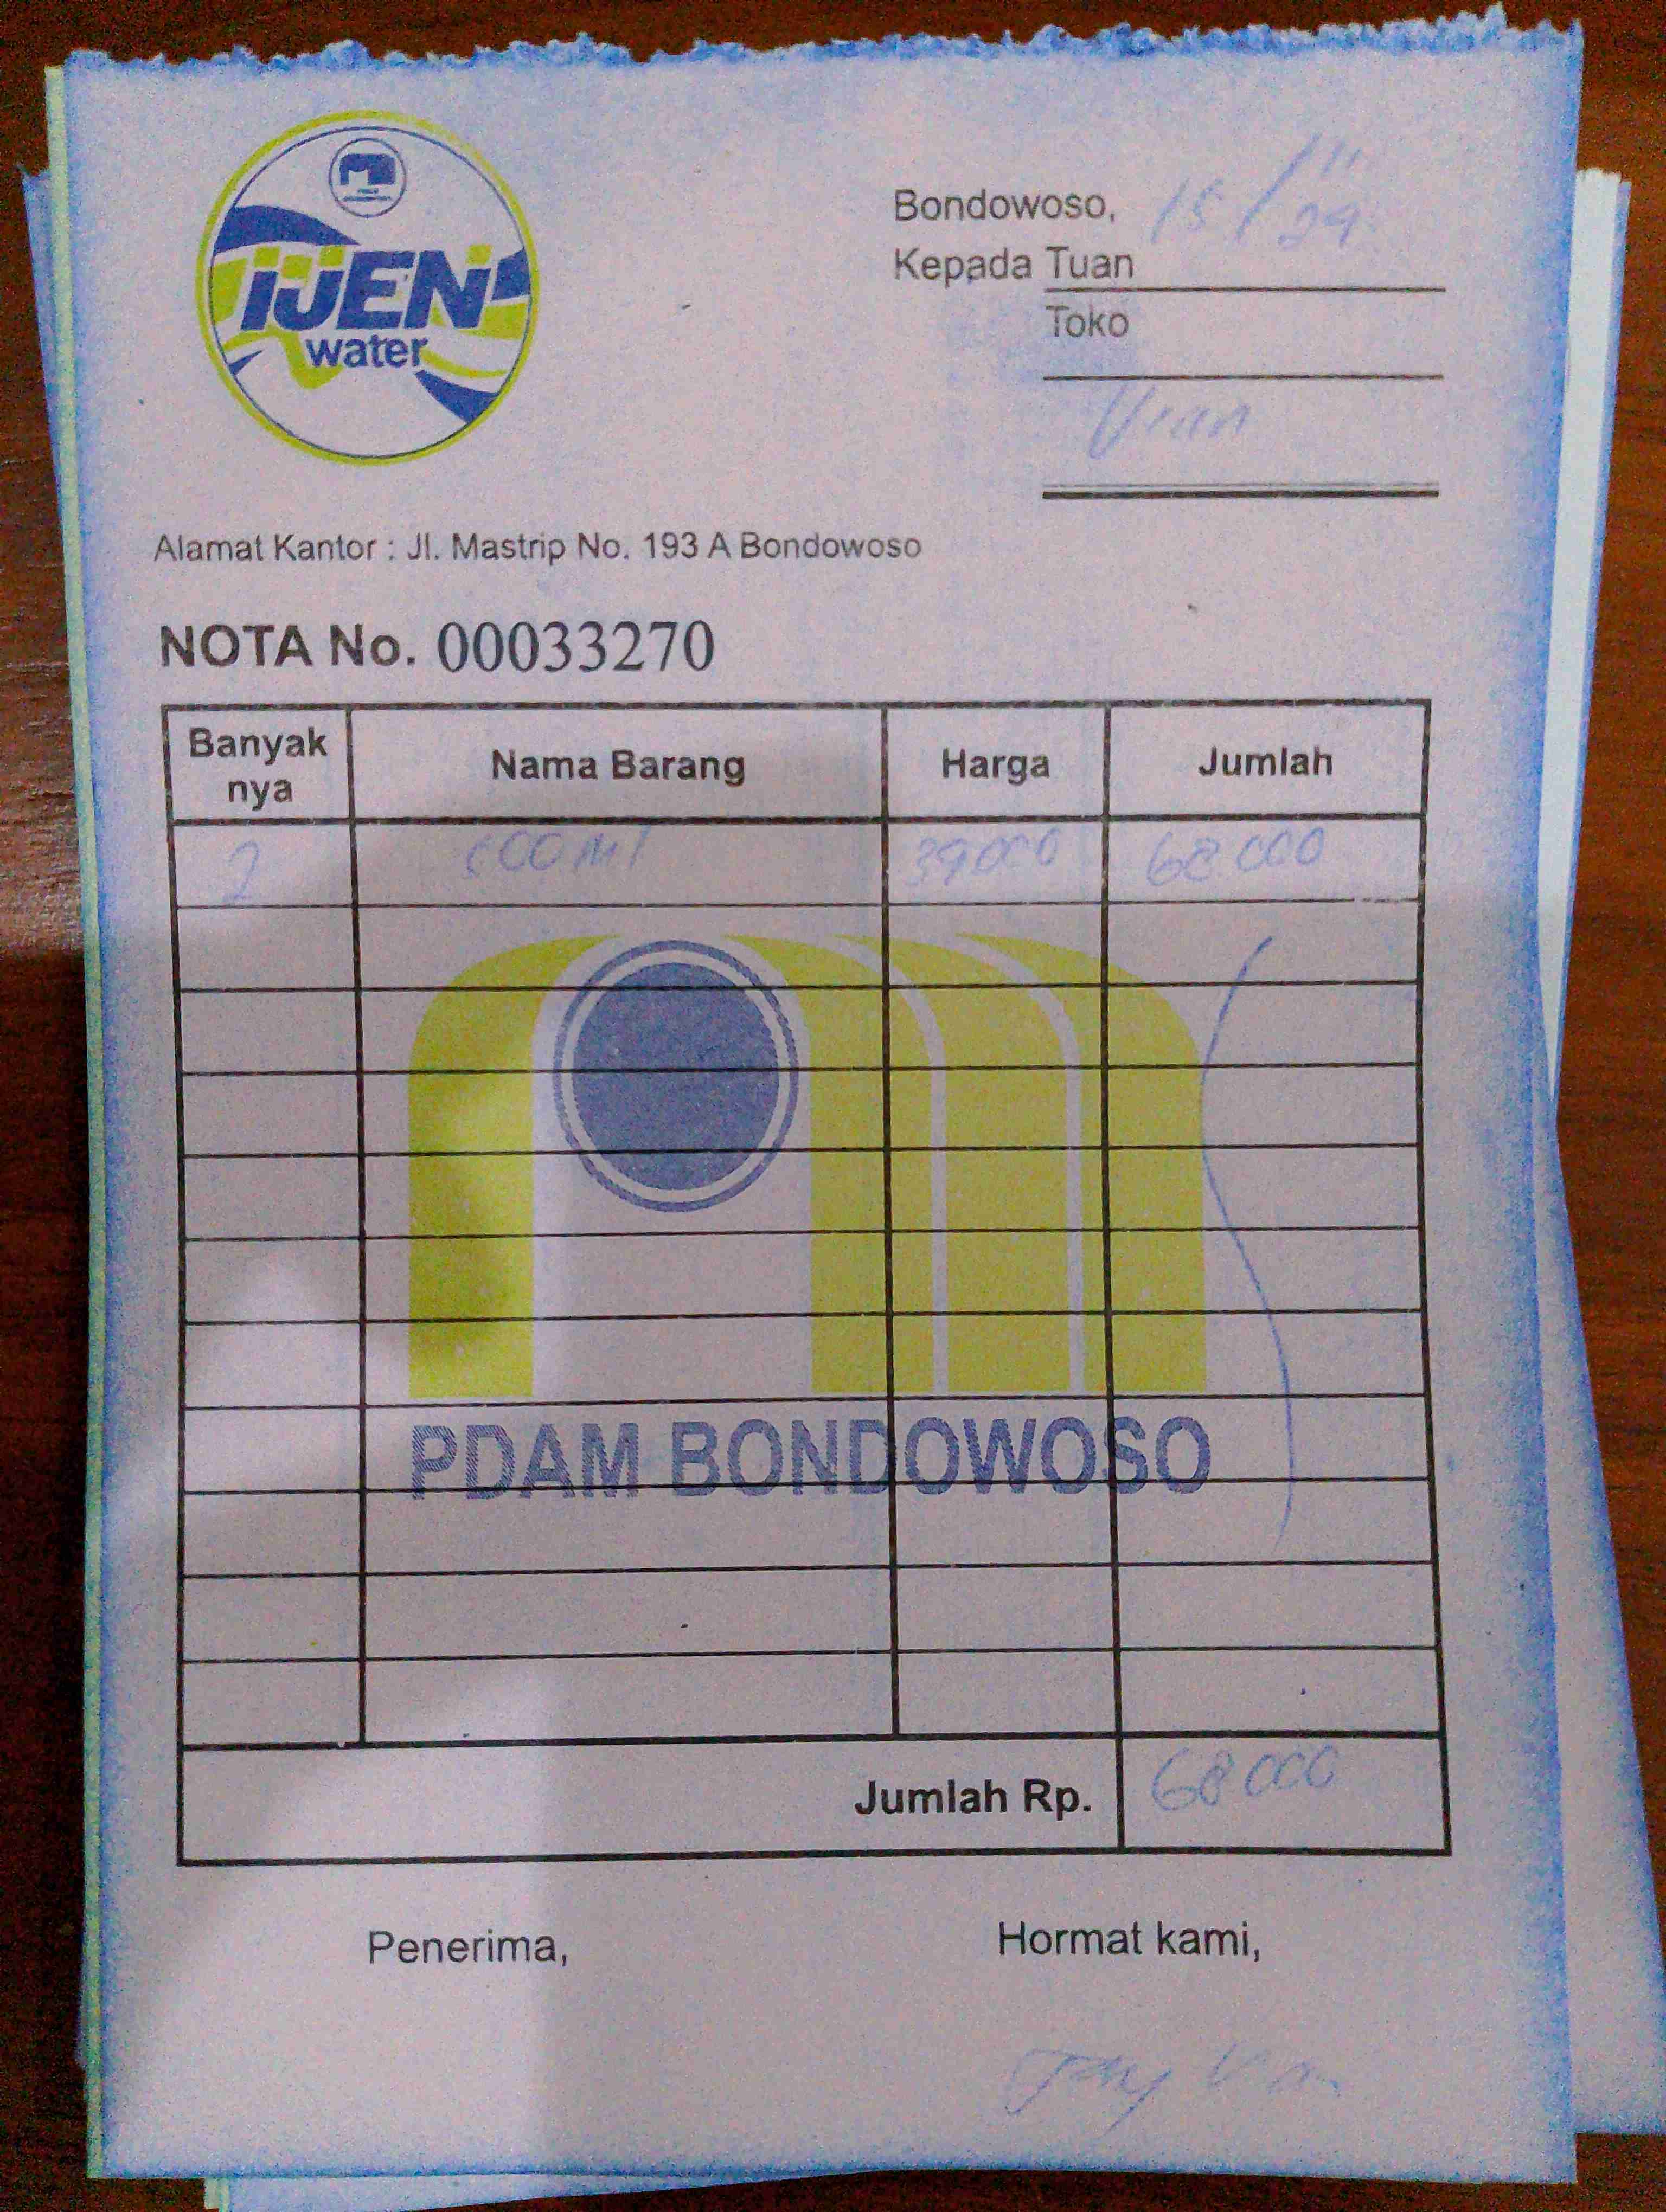 IJEN
water
Bondowoso, 15/11 24
Kepada Tuan
Toko
Alamat Kantor : Jl. Mastrip No. 193 A Bondowoso
NOTA No. 00033270
Banyak nya Nama Barang Harga Jumlah
2 600 ml 34000 68.000
PDAM BONDOWOSO
Jumlah Rp. 68000
Penerima, Hormat kami,